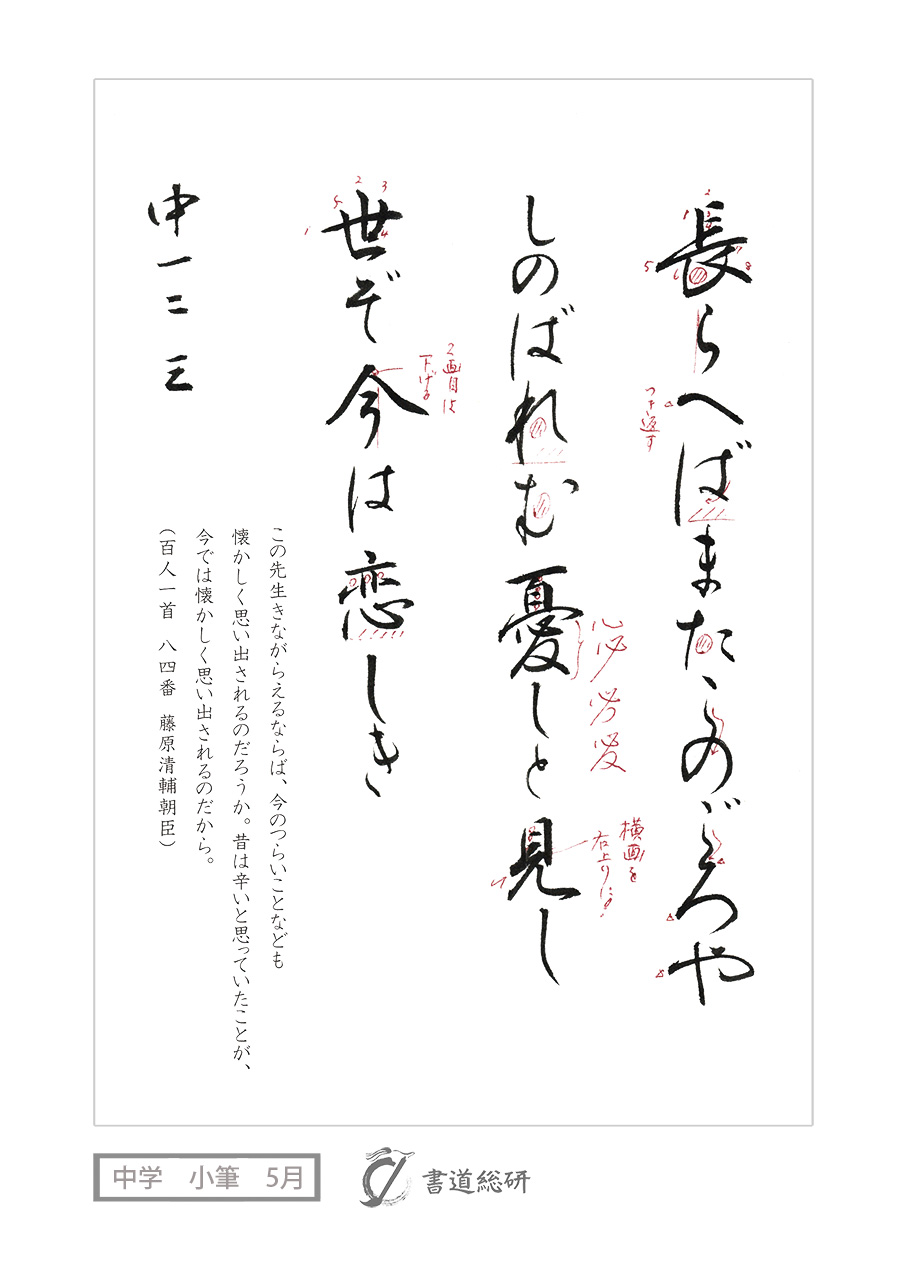 長らへばまたこのごろや
つき返す
しのばれむ憂しと見し
横画を
右上りに
世ぞ今は恋しき
2画目は
下げる
中一二三
この先生きながらえるならば、今のつらいことなども
懐かしく思い出されるのだろうか。昔は辛いと思っていたことが、
今では懐かしく思い出されるのだから。
（百人一首 八四番 藤原清輔朝臣）
中学 小筆 5月
書道総研